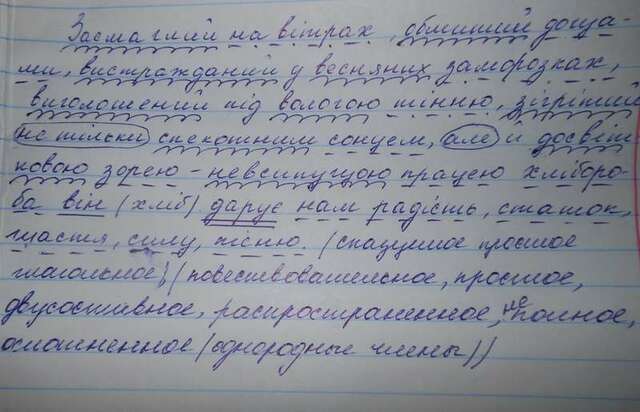 Засмаглий на вітрах, обмитий доща-
ми, вистражданий у весняних заморозках,
виголошений під вологою тінню, зігрітий
не тільки спекотним сонцем, але и досвіт
ковою зорею - невсипущою працею хлібороб-
ба він (хліб) дарує нам радість, статок,
щастя, силу, пісню. (сказуемое простое
глагольное) (повествовательное, простое,
двусоставное, распространенное, не полное,
осложненное (однородные члены))